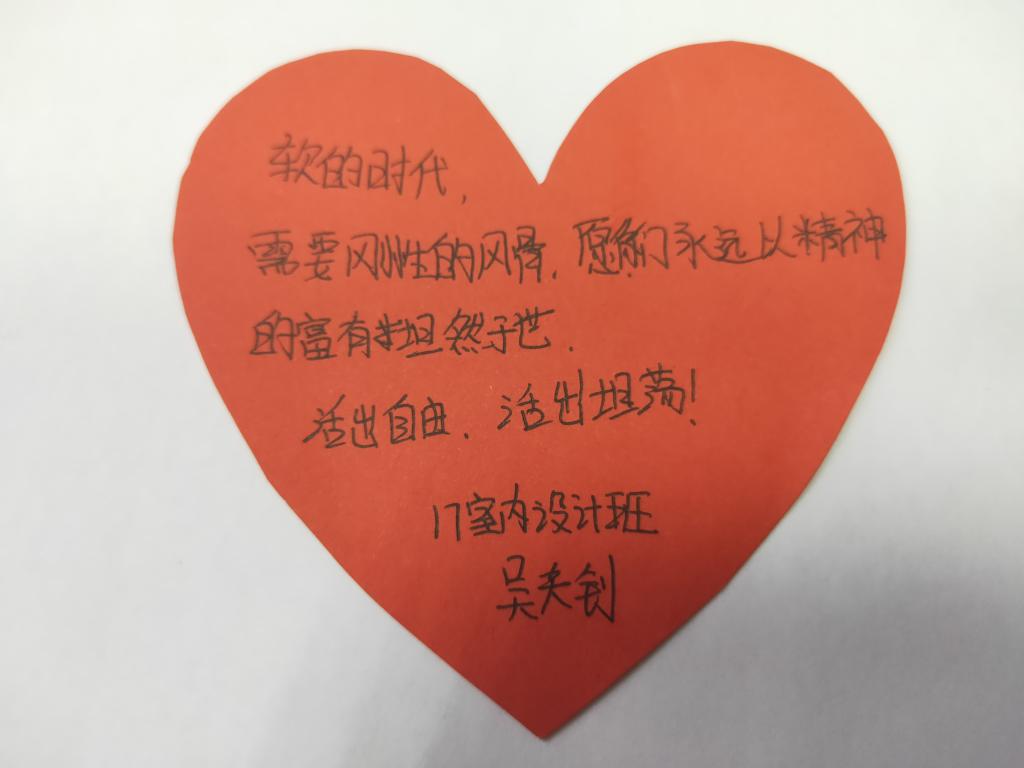 软的时代,
需要刚性的风骨,愿你们永远以精神
的富有坦然于世.
活出自由.活出坦荡!
17室内设计班
吴夫钊